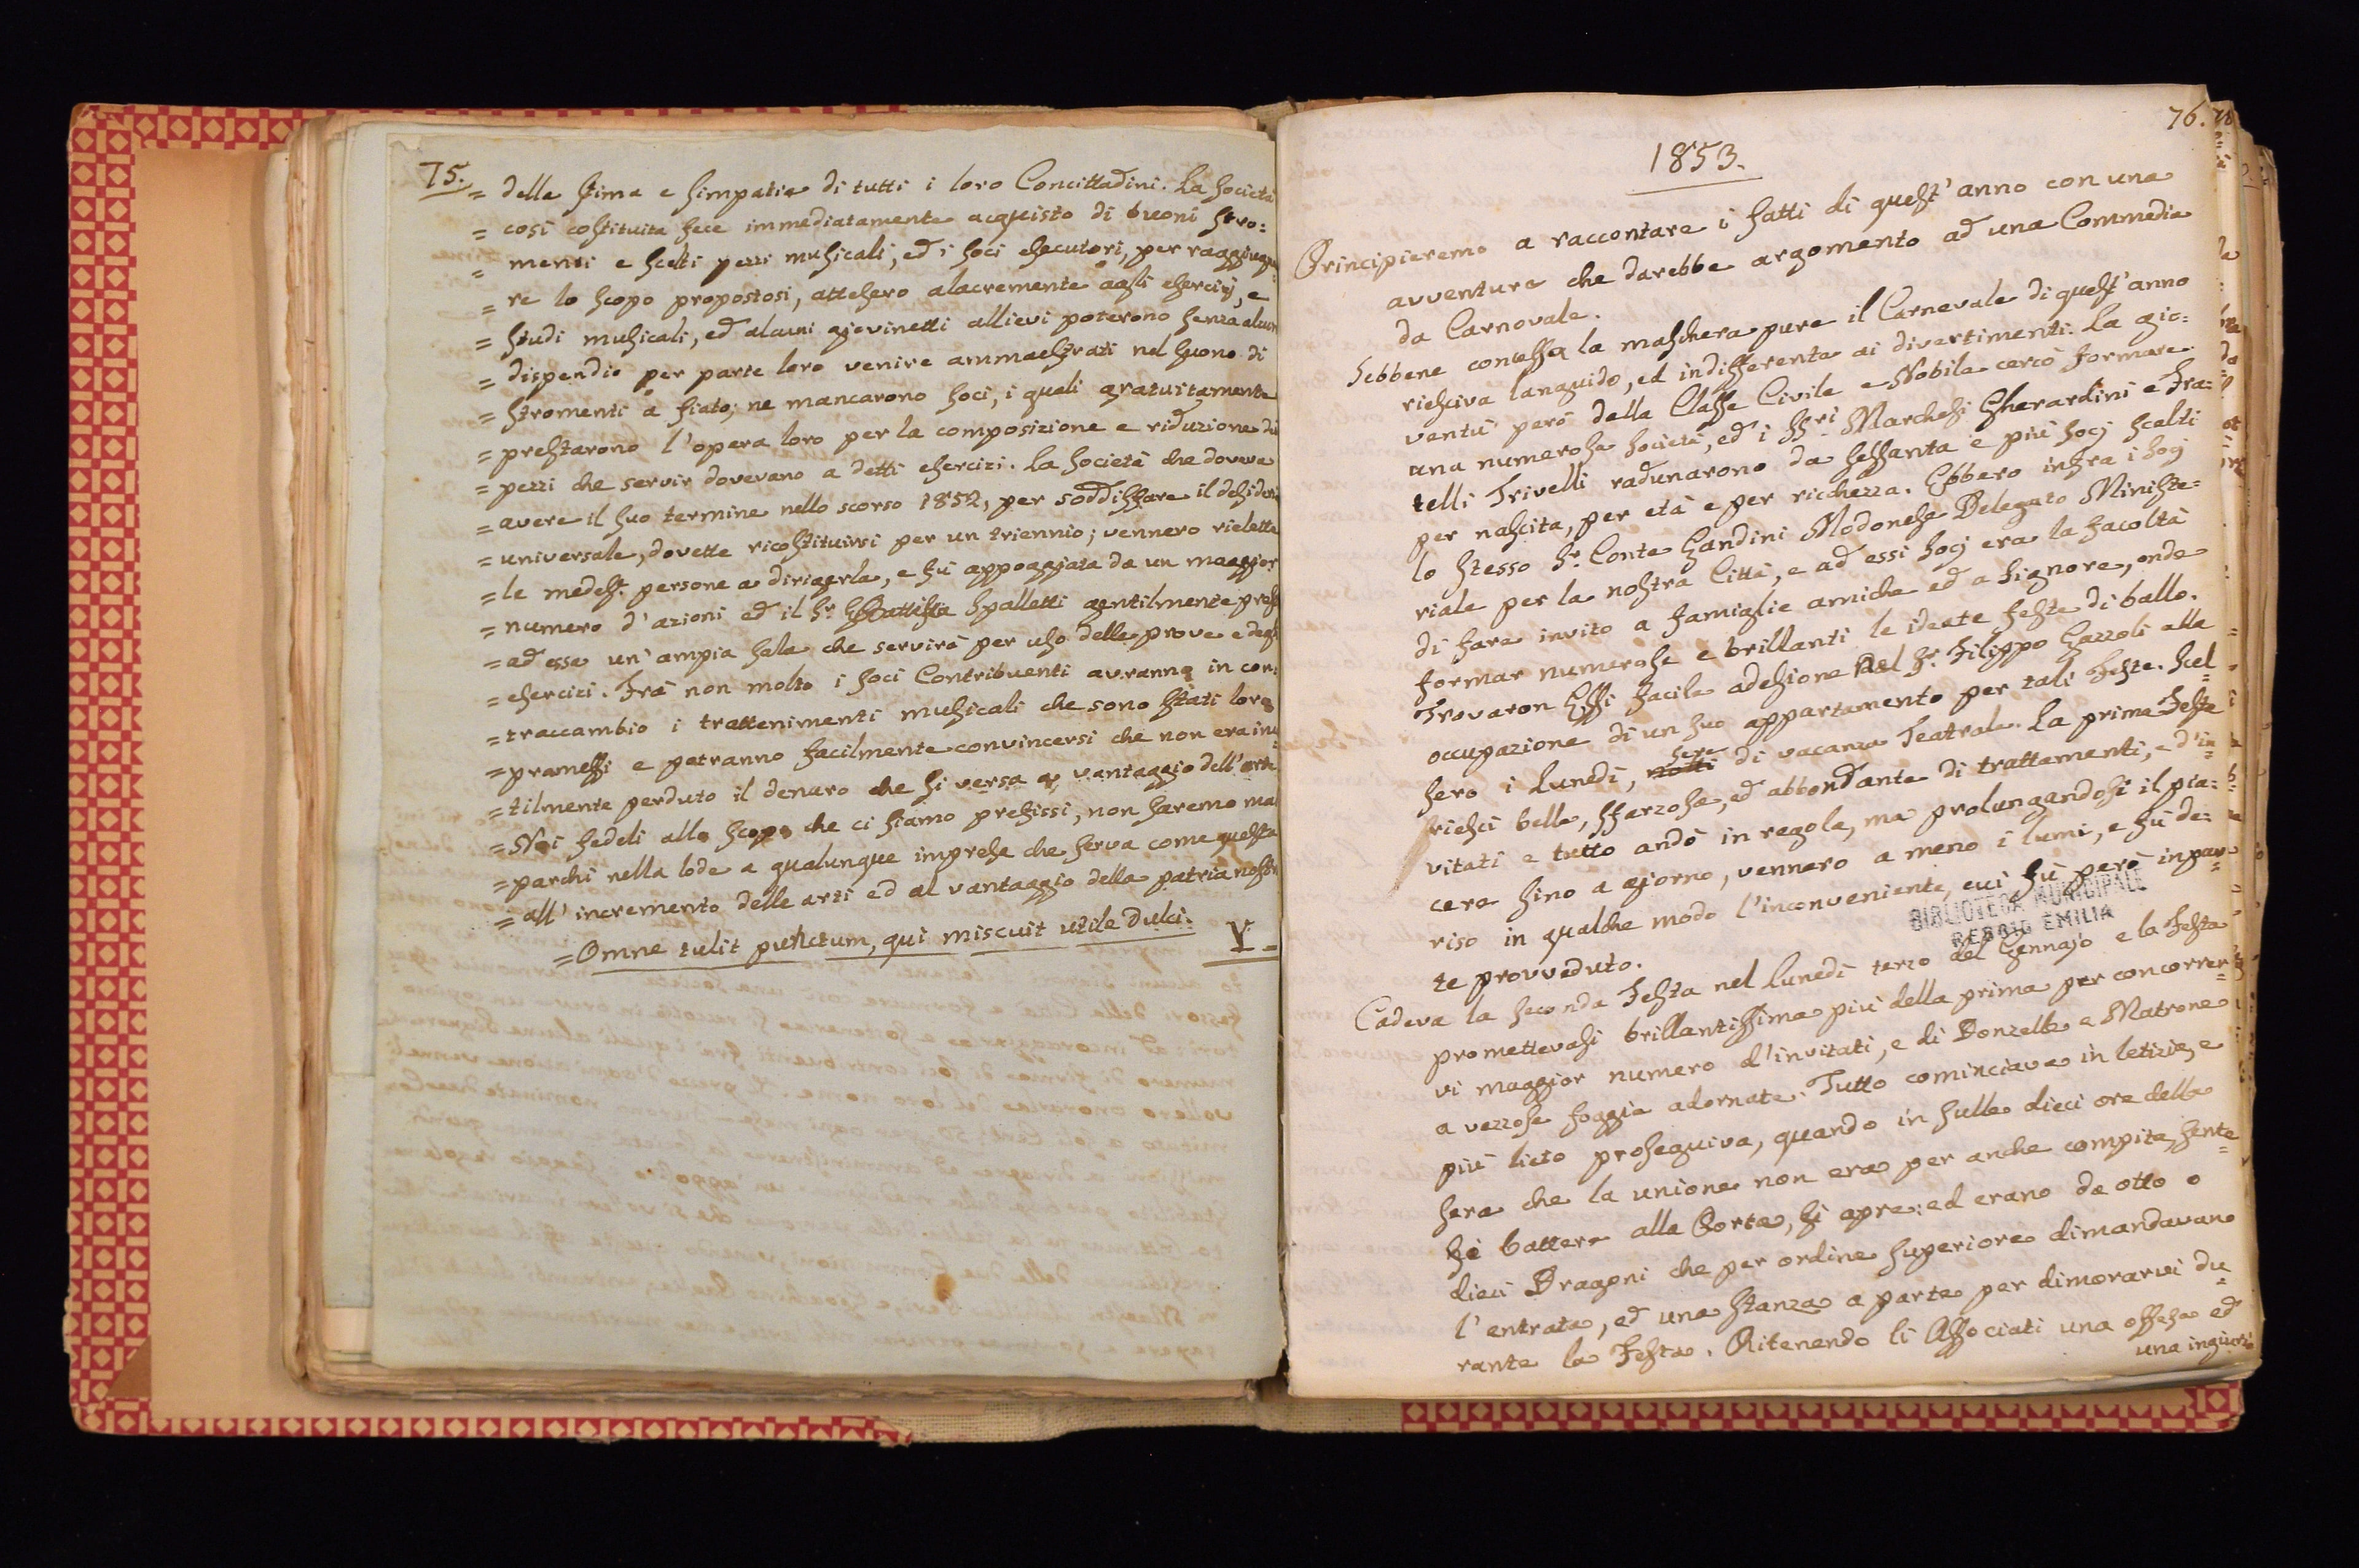 75.
= della stima e simpatia di tutti i loro Concittadini. La Società
= così costituita fece immediatamente acquisto di buoni stro:
= menti e scelti pezzi musicali, ed i soci esecutori, per raggiugne
= re lo scopo propostosi, attesero alacremente agli esercizj, e
= studi musicali, ed alcuni giovinetti allievi poterono senza alcun
= dispendio per parte loro venire ammaestrati nel suono di
= stromenti a fiato; ne mancarono soci, i quali gratuitamente
= prestarono l'opera loro per la composizione e riduzione di
= pezzi che servir dovevano a detti esercizi. La Società che doveva
= avere il suo termine nello scorso 1852, per soddisfare il desideri
= universale, dovette ricostituirsi per un triennio; vennero rielette
= le medes. persone a dirigerla, e fù appoggiata da un maggior
= numero d'azioni ed il Sr. GBattista Spalletti gentilmente prest
= ad essa un'ampia sala che servirà per uso delle prove e degl
= esercizi. Frà non molto i soci Contribuenti avranno in con:
= traccambio i trattenimenti musicali che sono stati loro
= promessi e potranno facilmente convincersi che non era inu
= tilmente perduto il denaro che si versa a vantaggio dell'arte
= Noi fedeli allo scopo che ci siamo prefissi, non saremo mai
= parchi nella lode a qualunque impresa che serva come questa
= all'incremento delle arti ed al vantaggio della patria nostr
= Omne tulit punctum, qui miscuit utile dulci. V -
76.
1853.
Principieremo a raccontare i fatti di quest'anno con una
avventura che darebbe argomento ad una Commedia
da Carnovale.
Sebbene concessa la maschera pure il Carnevale di quest'anno
riesciva languido, ed indifferente ai divertimenti. La gio:
ventù però della Classe Civile e Nobile cercò formare
una numerosa società, ed i SSri Marchesi Gherardini e Fra:
telli Trivelli radunarono da sessanta e più socj scelti
per nascita, per età e per ricchezza. Ebbero infra i socj
lo stesso Sr. Conte Gandini Modonese Delegato Ministe:
riale per la nostra Città, e ad essi socj era la facoltà
di fare invito a famiglie amiche ed a Signore, onde
formar numerose e brillanti le ideate feste di ballo.
Trovaron Essi facile adesione del Sr. Filippo Gazzoli alla
occupazione di un suo appartamento per tali Feste. Scel
sero i Lunedì, notti sere di vacanza Teatrale. La prima Festa
riescì bella, sferzosa, ed abbondante di trattamenti, e d'in
vitati e tutto andò in regola, ma prolungandosi il pia:
cere fino a giorno, vennero a meno i lumi, e fù de:
riso in qualche modo l'inconveniente, cui fù però in par
te provveduto.
BIBLIOTECA MUNICIPALE
REGGIO EMILIA
Cadeva la seconda Festa nel lunedì terzo del Gennajo e la Festa
promettevasi brillantissima più della prima per concorrer
vi maggior numero d'invitati, e di Donzelle e Matrone
a vezzose foggie adornate. Tutto cominciava in letizia, e
più lieto proseguiva, quando in sulle dieci ore della
sera che la unione non era per anche compita, sente
si battere alla Porta, si apre: ed erano da otto o
dieci Dragoni che per ordine superiore dimandavano
l'entrata, ed una stanza a parte per dimorarvi du
rante la Festa. Ritenendo li Associati una offesa ed
una ingiuria